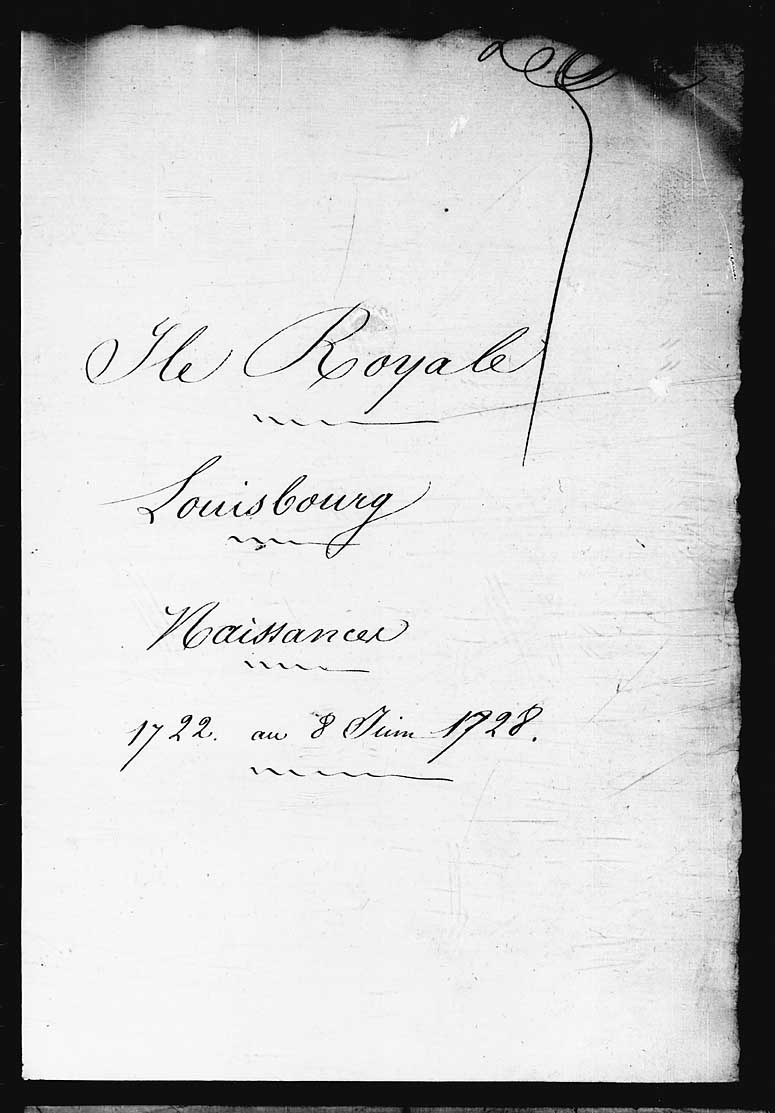 Ile Royale
Louisbourg
Naissances
1722. au 8 Juin 1728.